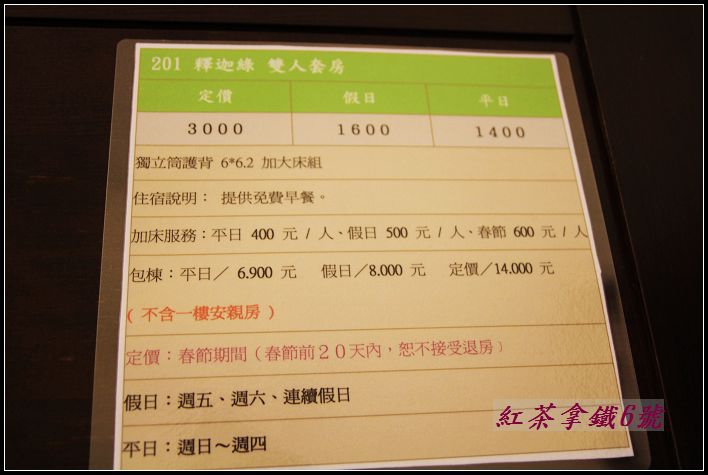 201 釋迦綠 雙人套房
定價 假日 平日
3000 1600 1400
獨立筒護背 6*6.2 加大床組
住宿說明： 提供免費早餐。
加床服務：平日 400 元 / 人、假日 500 元 / 人、春節 600 元 / 人
包棟：平日／ 6.900 元 假日／8.000 元 定價／14.000 元
( 不含一樓安親房 )
定價：春節期間（春節前２０天內，恕不接受退房）
假日：週五、週六、連續假日
平日：週日～週四
紅茶拿鐵6號